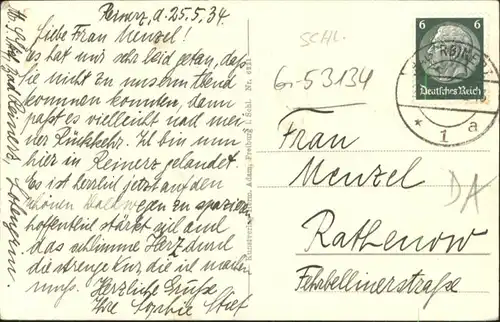 Reinerz, d. 25.5.34.
Liebe Frau Menzel!
Es hat mir sehr leid getan, daß
Sie nicht zu unserm Abend
kommen konnten, dann
paßt es vielleicht nach mei-
ner Rückkehr. Ich bin nun
hier in Reinerz gelandet.
Es ist herrlich jetzt auf den
schönen Waldwegen zu spazieren
hoffentlich stärkt sich auch
das schlimme Herz durch
die strenge Kur, die ich machen
muss. Herzliche Grüße
Ihre Sophie
Bad Reinerz
Lohengrin.
Adam, Freiburg i. Schl. Nr.
SCHL.
G-53134
6 6
Deutsches Reich
* 1 a
Frau
Menzel
DA
Rathenow
Fehrbellinerstraße